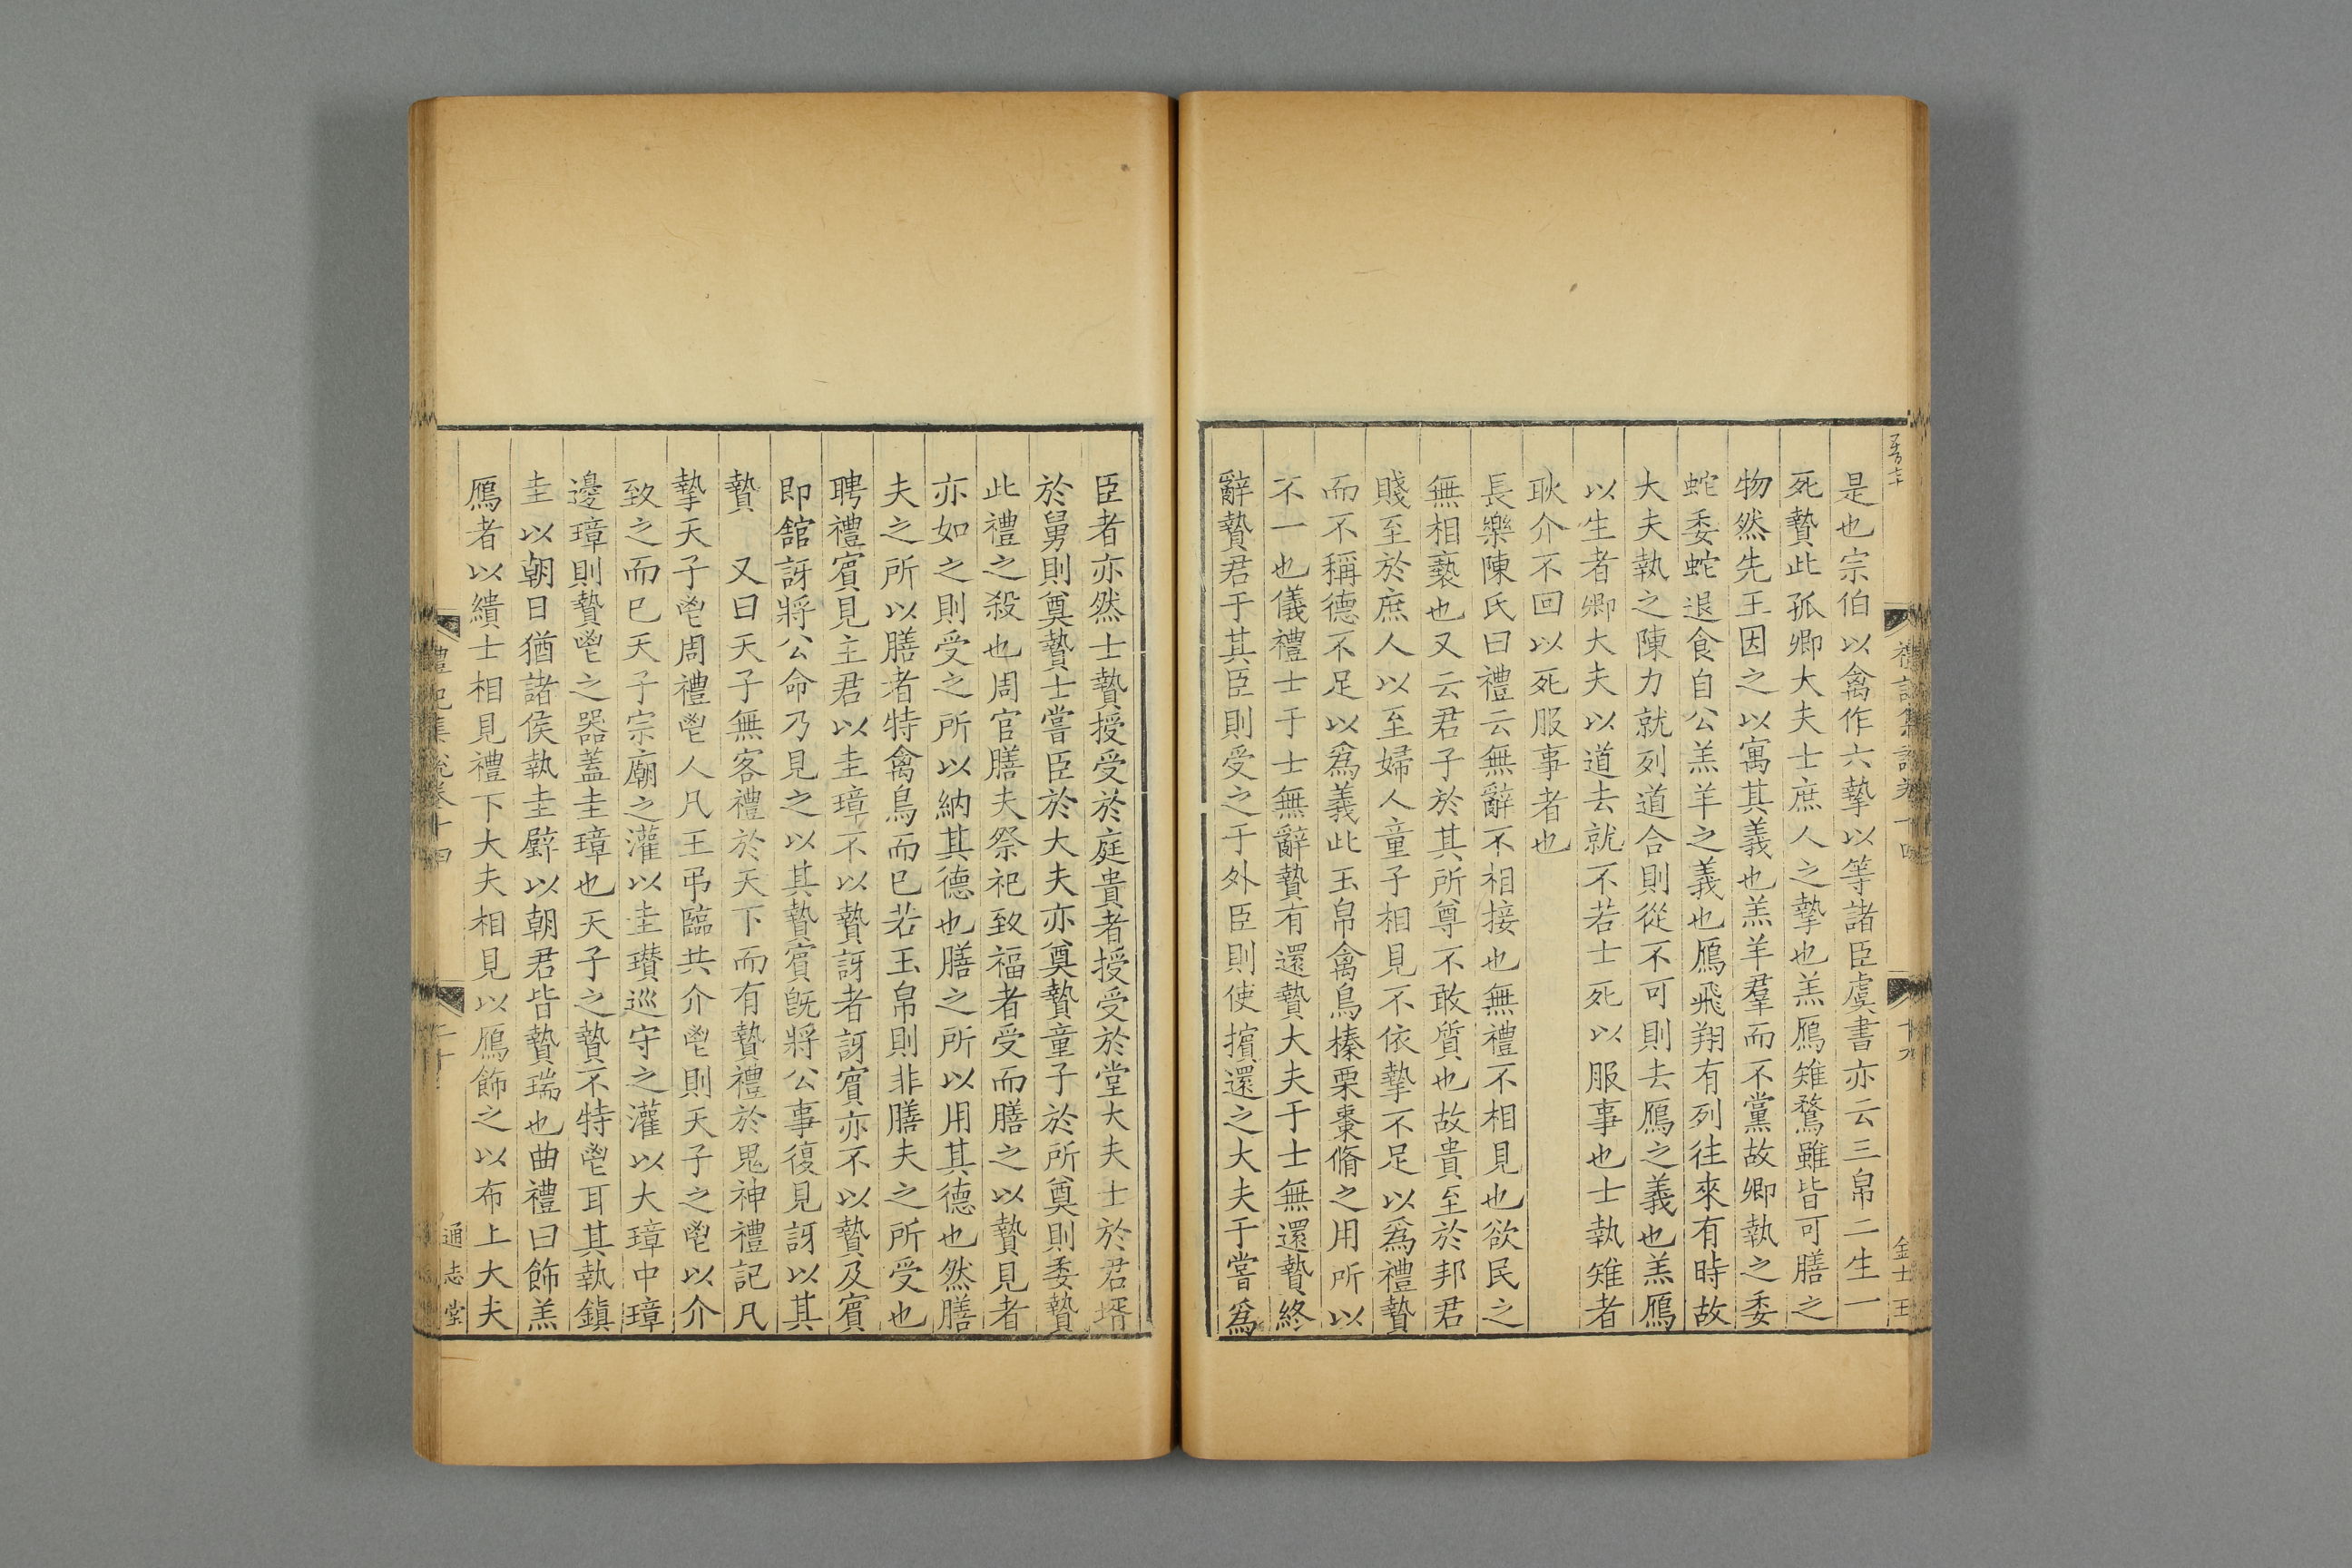 是也宗伯以禽作六摯以等諸臣虞書亦云三帛二生一
死贄此孤卿大夫士庶人之摯也羔鴈雉鶩雖皆可膳之
物然先王因之以寓其義也羔羊羣而不黨故卿執之委
蛇委蛇退食自公羔羊之義也鴈飛翔有列往來有時故
大夫執之陳力就列道合則從不可則去鴈之義也羔鴈
以生者卿大夫以道去就不若士死以服事也士執雉者
耿介不回以死服事者也
長樂陳氏曰禮云無辭不相接也無禮不相見也欲民之
無相䙝也又云君子於其所尊不敢質也故貴至於邦君
賤至於庶人以至婦人童子相見不依摯不足以爲禮贄
而不稱德不足以爲義此玉帛禽鳥榛栗棗脩之用所以
不一也儀禮士于士無辭贄有還贄大夫于士無還贄終
辭贄君于其臣則受之于外臣則使擯還之大夫于嘗爲
臣者亦然士贄授受於庭貴者授受於堂大夫士於君壻
於舅則奠贄士嘗臣於大夫亦奠贄童子於所奠則委贄
此禮之殺也周官膳夫祭祀致福者受而膳之以贄見者
亦如之則受之所以納其德也膳之所以用其德也然膳
夫之所以膳者特禽鳥而已若玉帛則非膳夫之所受也
聘禮賓見主君以圭璋不以贄訝者訝賓亦不以贄及賓
即舘訝將公命乃見之以其贄賓旣將公事復見訝以其
贄　又曰天子無客禮於天下而有贄禮於鬼神禮記凡
摯天子鬯周禮鬯人凡王弔臨共介鬯則天子之鬯以介
致之而已天子宗廟之灌以圭瓚巡守之灌以大璋中璋
邊璋則贄鬯之器蓋圭璋也天子之贄不特鬯耳其執鎮
圭以朝日猶諸侯執圭璧以朝君皆贄瑞也曲禮曰飾羔
鴈者以繢士相見禮下大夫相見以鴈飾之以布上大夫
禮記集說卷十四
通志堂